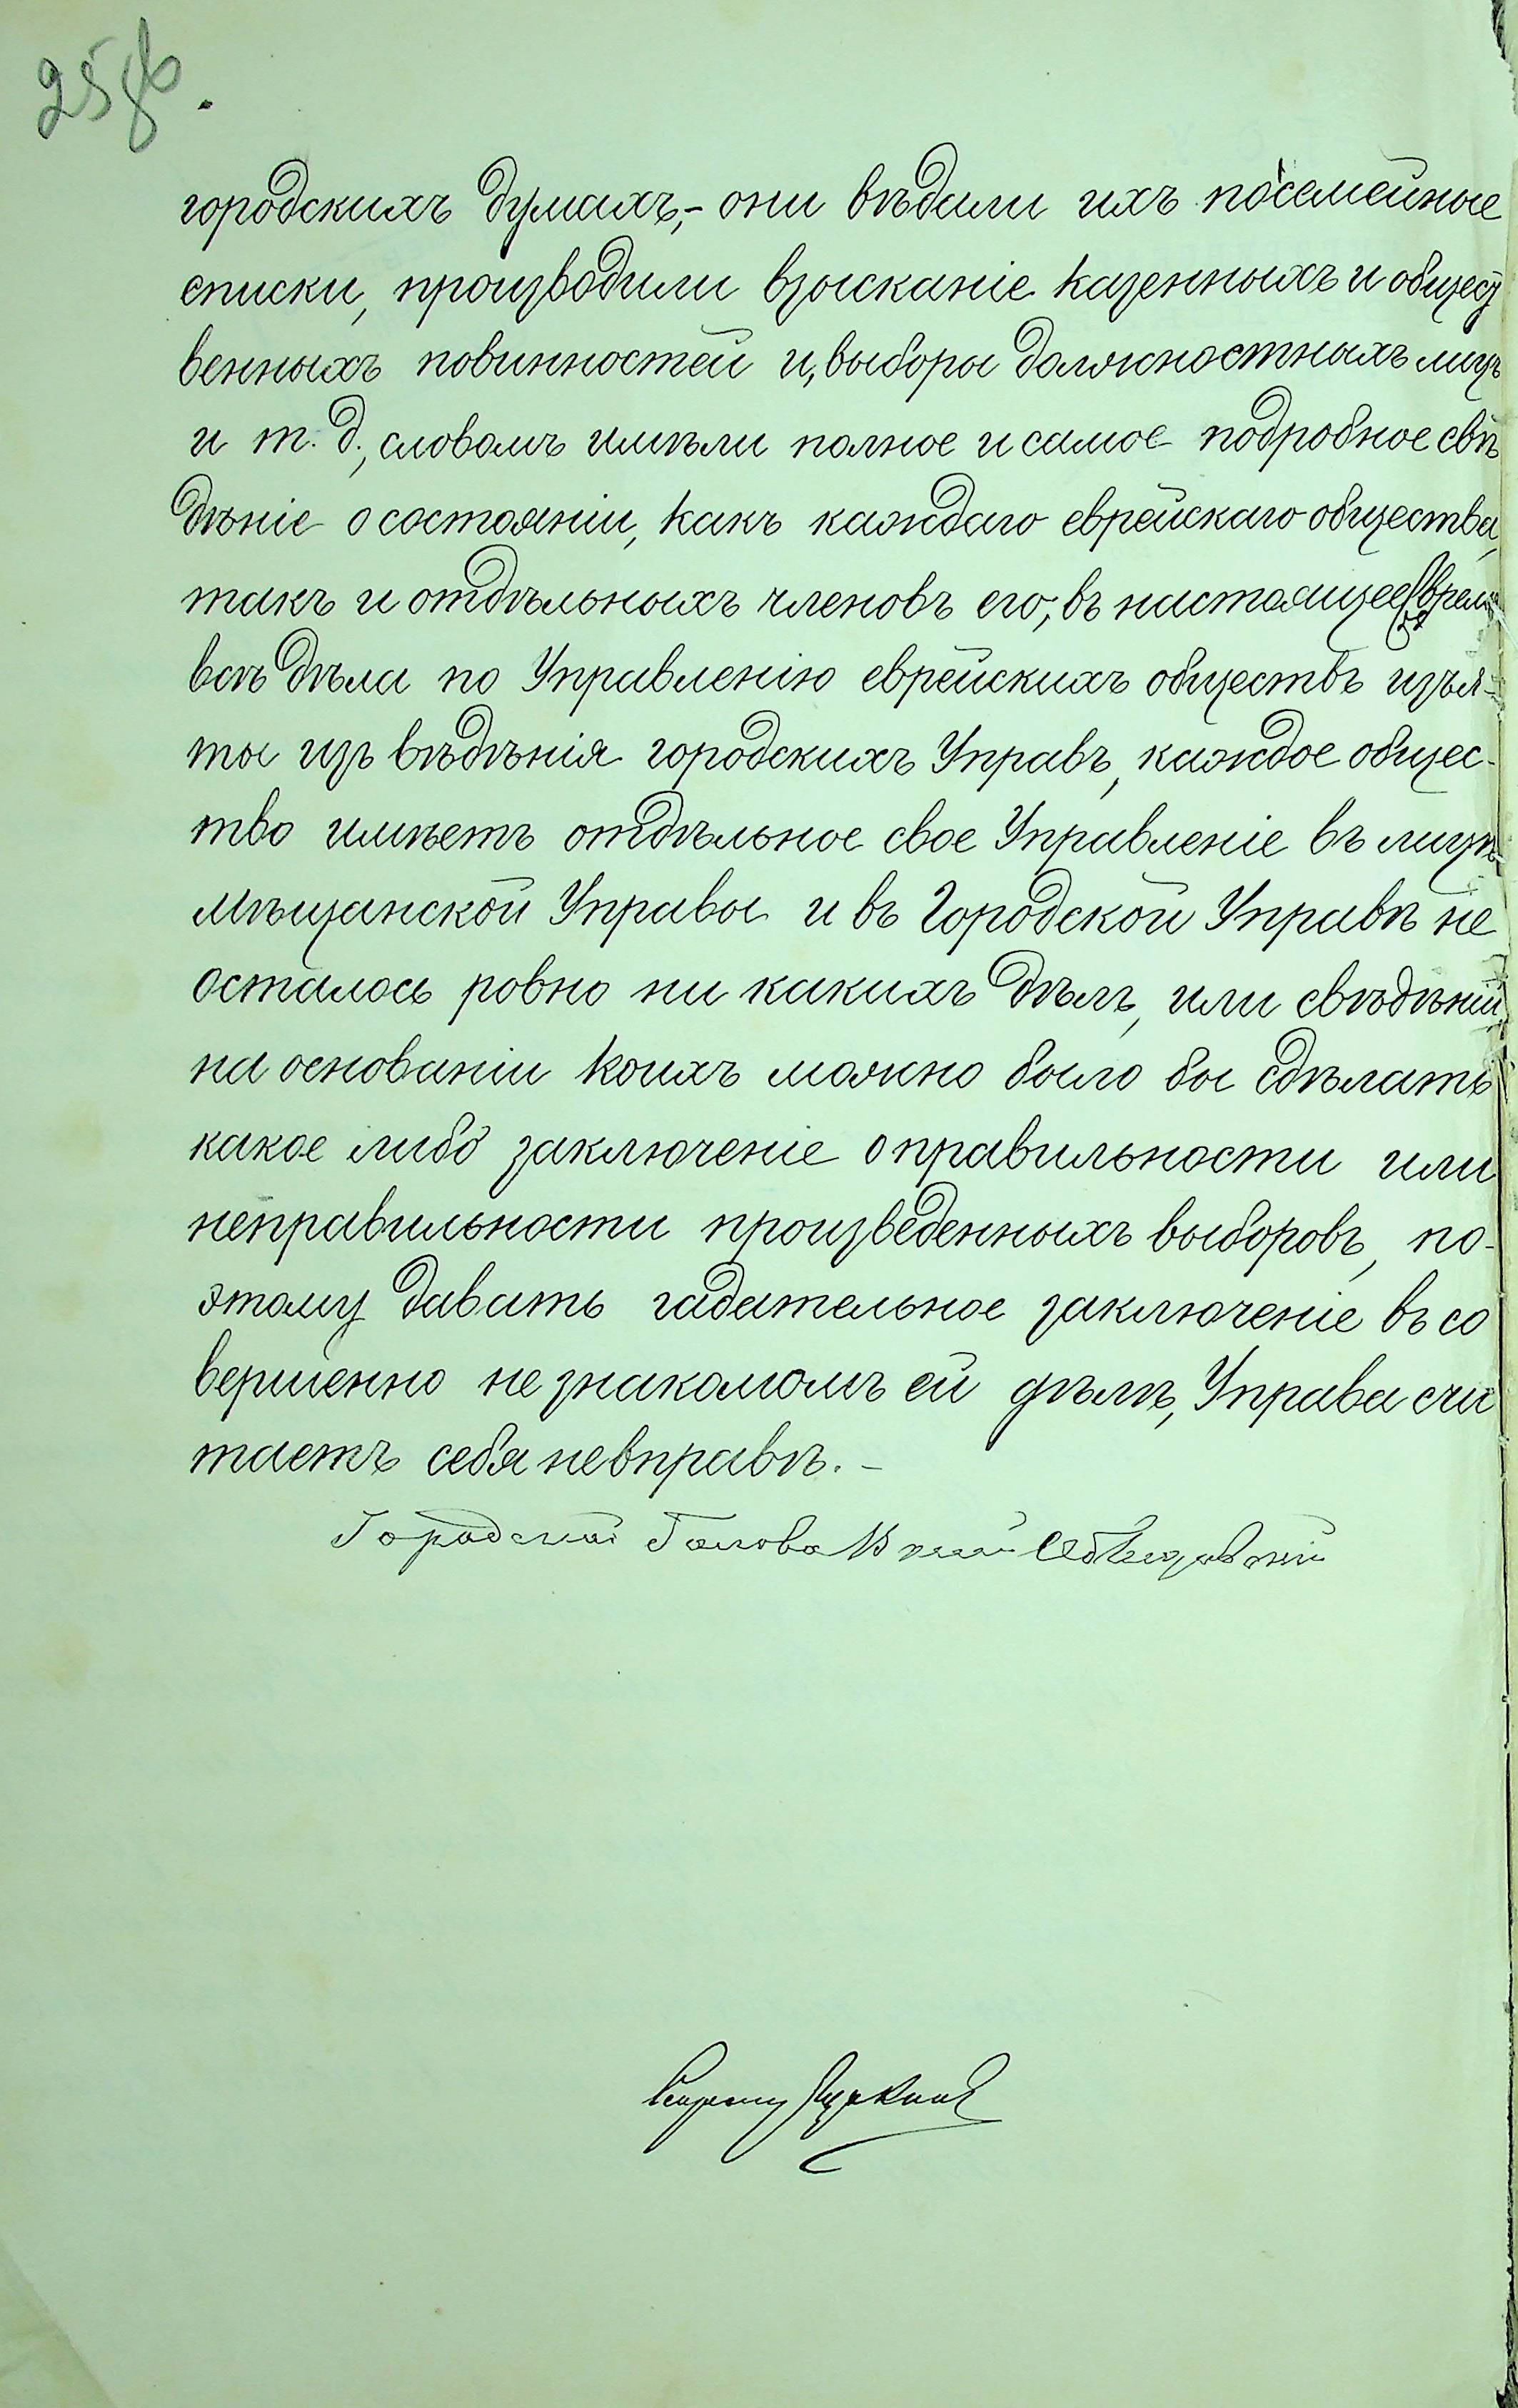 25 об.
городскихъ думахъ,- они вѣдали ихъ посемейные
списки, производили взысканіе казенныхъ и общест
венныхъ повинностей и, выборы должностныхъ лицъ
и т. д., словомъ имѣли полное и самое подробное свѣ
дѣніе о состояніи, какъ каждаго еврейскаго общества,
такъ и отдѣльныхъ членовъ его; въ настоящее время
всѣ дѣла по Управленію еврейскихъ обществъ изъя-
ты изъ вѣдѣнія городскихъ Управъ, каждое общес-
тво имѣетъ отдѣльное свое Управленіе въ лицѣ
мѣщанской Управы и въ Городской Управѣ не
осталось ровно ни какихъ дѣлъ, или свѣдѣній
на основаніи коихъ можно было бы сдѣлать
какое либо заключеніе о правильности или
неправильности произведенныхъ выборовъ, по-
этому давать гадательное заключеніе въ со
вершенно не знакомомъ ей дѣлѣ, Управа счи
таетъ себя невправѣ. -
Городской Голова